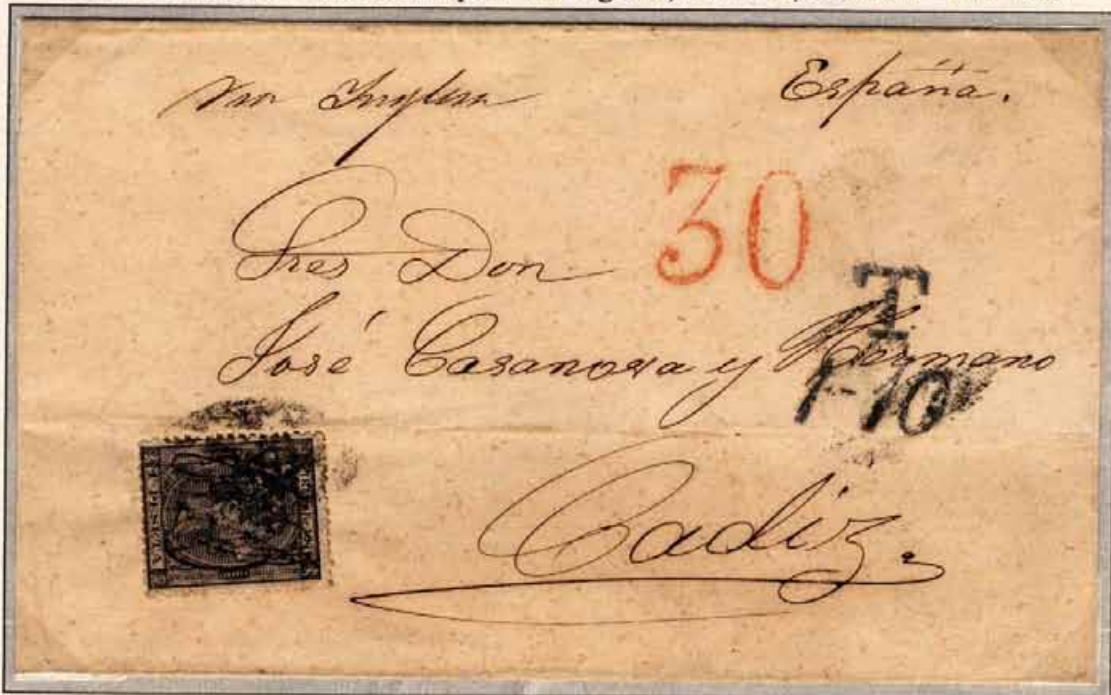 Via Inglesa España.
30
Sres Don
T
José Casanova y Hermano
1-10
Cadiz.
PESETA